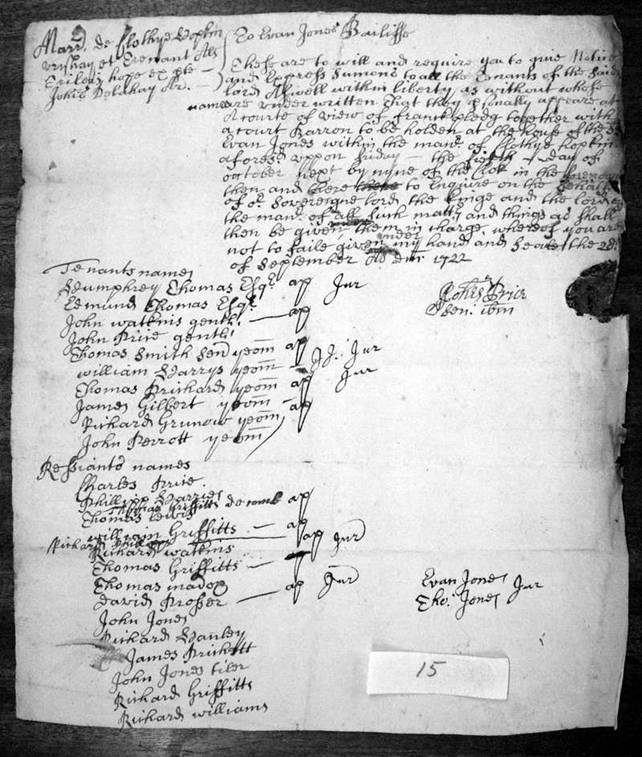 Mann de Llothye Hopkin
Urishay et Tremant Als
hope ex pte
Johis Delahay Ar.
To Evan Jones Bailiffe
These are to will and require you to give Notice
and Express Sumons to all the tenants of the said
lord Aswell within liberty as without whose
names are under written that they psonally appeare at
A Courte of view of franckpledg together with
a Court Barron to be holden at the house of the sd
Evan Jones within the mann of Llothye hopkin
aforesd uppon friday the day of
october next by nyne of the Clok in the
then and there to Enquire on the behalfe
of or Sovereigne lord the kinge and the lord of
the mann of all such mattrs and things as shall
then be given them in charge. whereof you are
not to faile given under my hand and Seale the
of September Ao Dni 1722
Johes Price
Sen: ibm
Tenants names
Humphrey Thomas Esqr ap Jur
Edmund Thomas Esqr
John watkins gentl. ap
John Price gentl.
Thomas Smith Senr yeom ap
william Harrys yeom Jur
Thomas Prichard yeom ap Jur
James Gilbert yeom ap
Richard Grunow yeom
John Perrott yeom
Ressiants names
Charles Price
Phillipp Harries
Thomas Griffitts de comb ap
Thomas Lewis
william Griffitts ap
Richard
Richard watkins ap Jur
Thomas Griffitts
Thomas madox ap Jur
David Prosser
John Jones
Richard Hanley
James Prichett
John Jones tiler
Richard Griffitts
Richard williams
Evan Jones Jur
Tho: Jones
15